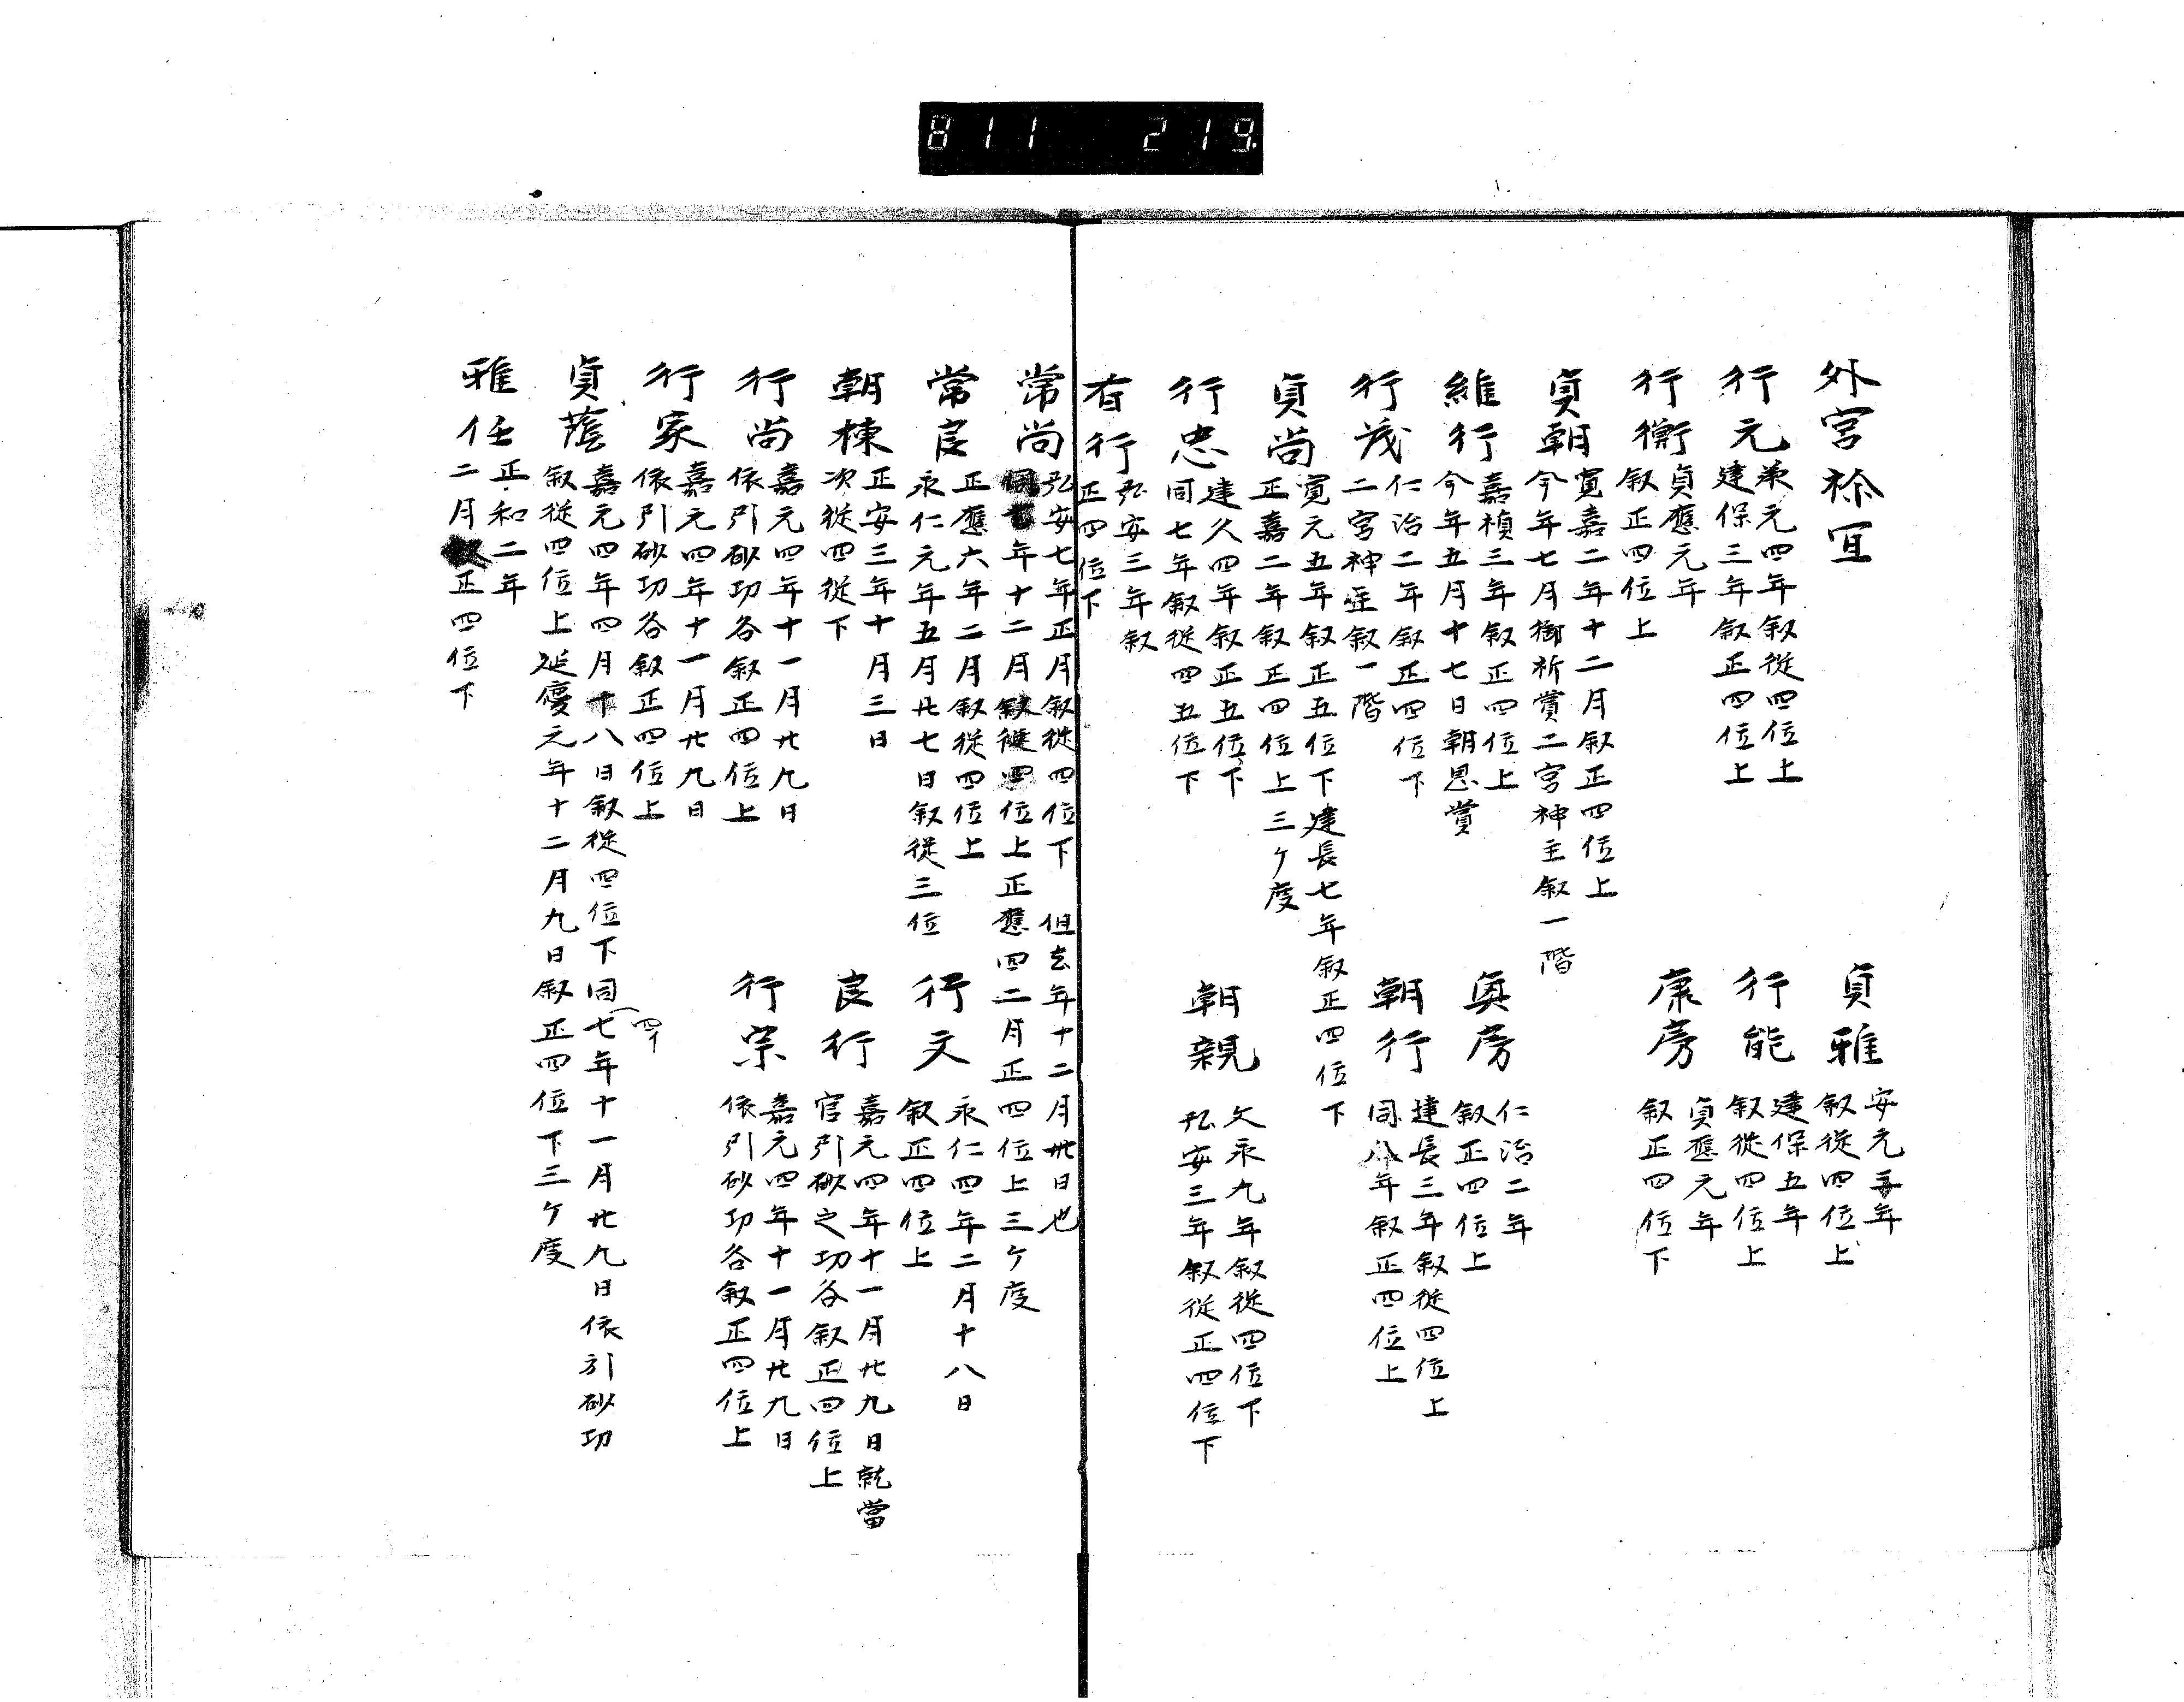 811 219
外宮祢冝
貞雅 安元三年
叙従四位上
行元 承元四年叙従四位上
建保三年叙正四位上
行能 建保五年
叙従四位上
行衡 貞應元年
叙正四位上
康房 貞應元年
叙正四位下
貞朝 寛嘉二年十二月叙正四位上
今年七月御祈賞二宮神主叙一階
維行 嘉楨三年叙正四位上
今年五月十七日朝恩賞
奥房 仁治二年
叙正四位上
行茂 仁治二年叙正四位下
二宮神主叙一階
朝行 建長三年叙従四位上
同八年叙正四位上
貞尚 寛元五年叙正五位下建長七年叙正四位下
正嘉二年叙正四位上三ケ度
行忠 建久四年叙正五位下
同七年叙従四五位下
朝親 文永九年叙従四位下
弘安三年叙従正四位下
有行 弘安三年叙
正四位下
常尚 弘安七年正月叙従四位下 但去年十二月卅日也
同七年十二月叙従四位上正應四二月正四位上三ケ度
常良 正應六年二月叙従四位上
永仁元年五月廿七日叙従三位
行文 永仁四年二月十八日
叙正四位上
朝棟 正安三年十月三日
次従四従下
良行 嘉元四年十一月廿九日就當
官引砂之功各叙正四位上
行尚 嘉元四年十一月廿九日
依引砂功各叙正四位上
行宗 嘉元四年十一月廿九日
依引砂功各叙正四位上
行家 嘉元四年十一月廿九日
依引砂功各叙正四位上
貞蔭 嘉元四年四月十八日叙従四位下同七年十一月廿九日依引砂功
四
叙従四位上延慶元年十二月九日叙正四位下三ケ度
雅任 正和二年
二月叙正四位下